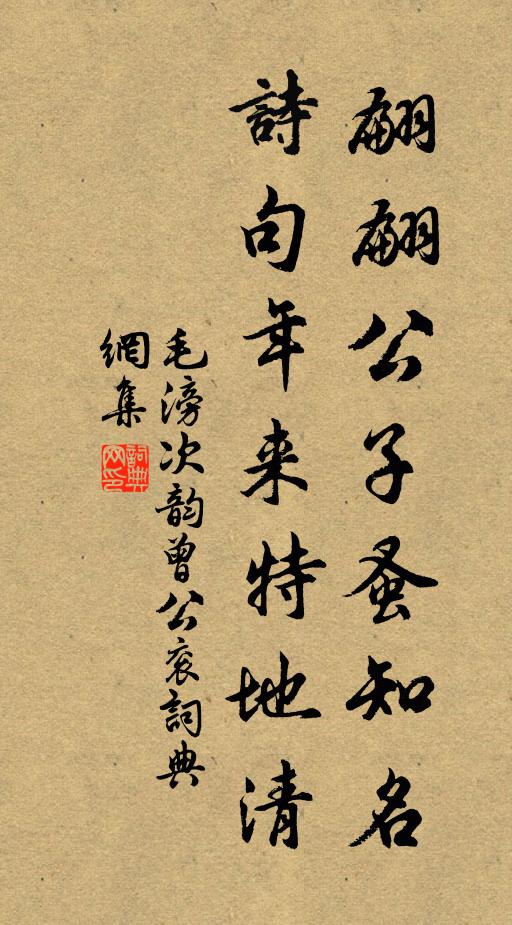 翩翩公子蚤知名
詩句年来特地清
毛滂次韵曾公衮詞典
網集
詞典
网印